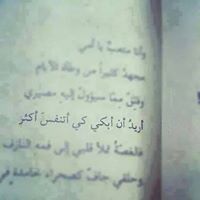 وأنا متعبٌ يا أمي
مجهدٌ كثيراً من وطأة الأيام
وقلقٌ ممّا سيؤول إليه مصيري
أريدُ أن أبكي كي أتنفّسَ أكثر
فالغصّةُ تملأ قلبي إلى فمه النازف
وحلقي جافٌ كصحراء خامدة في